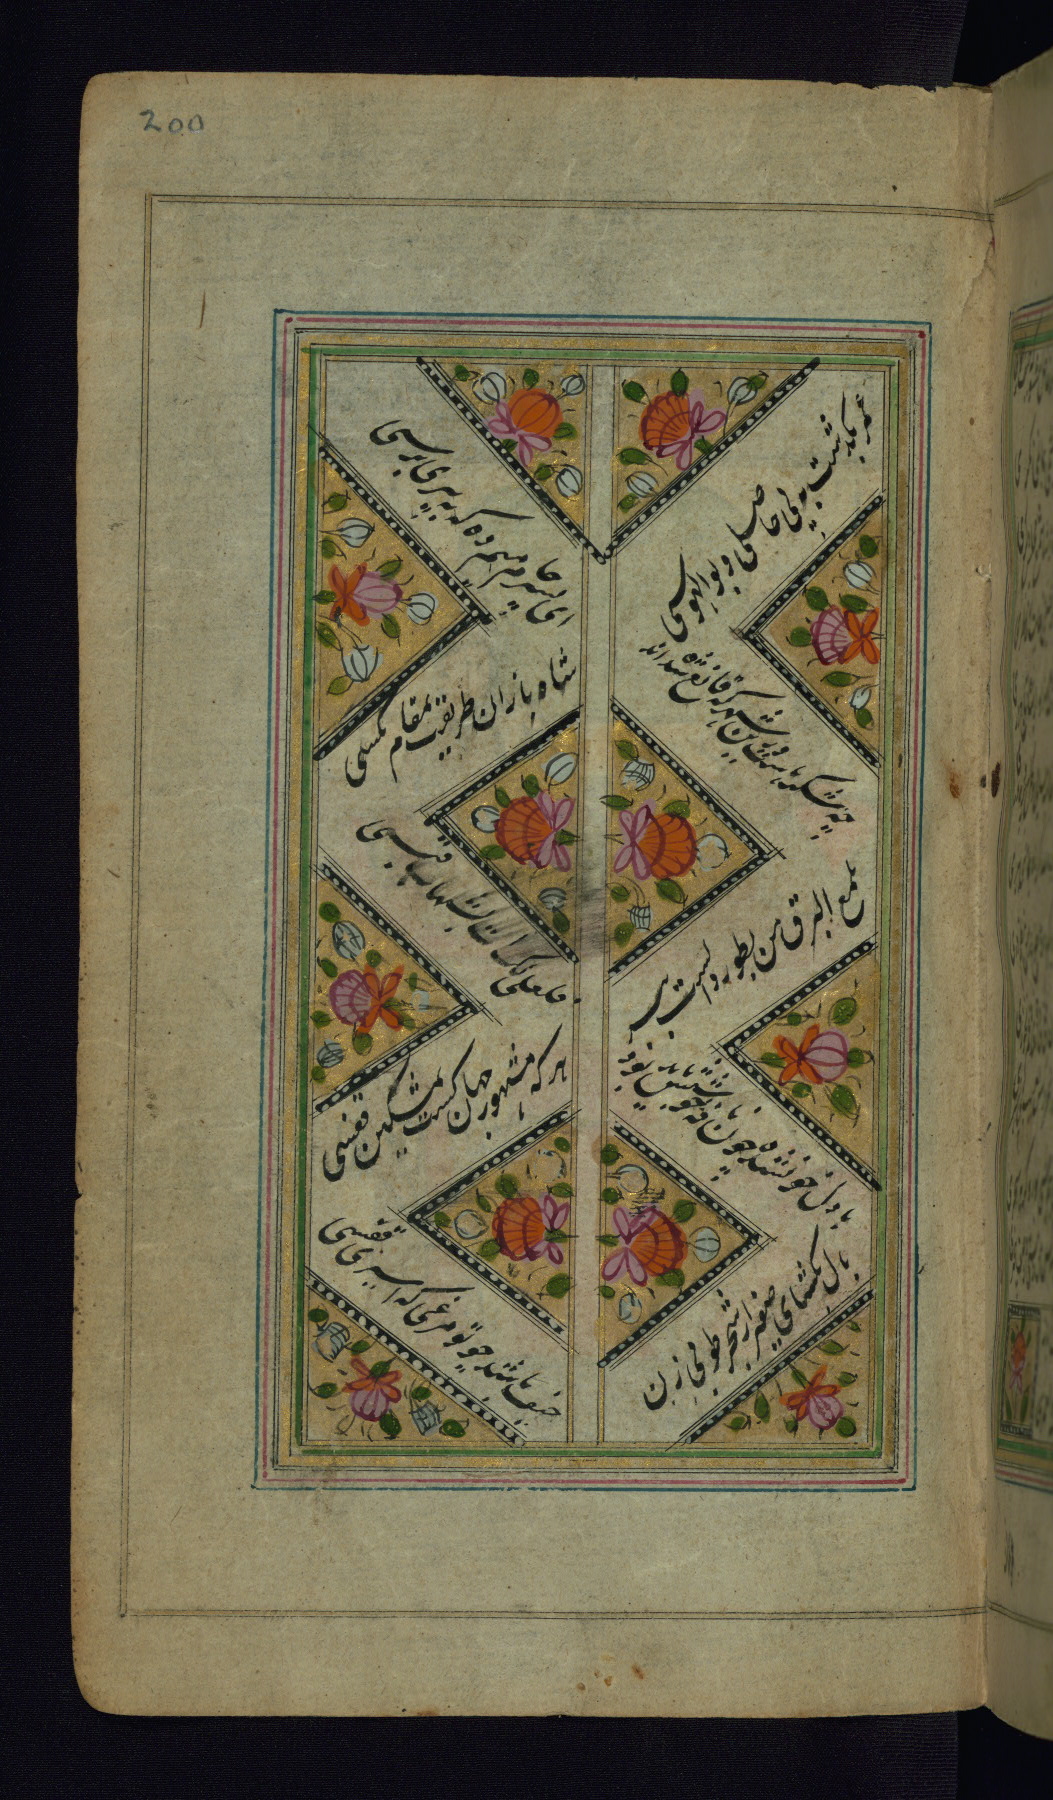 200
عمر بگذشت به بی حاصلی و بوالهوسی
ای پسر جام میم ده که به پیری برسی
چه شکرهاست درین شهر که قانع شده اند
شاه بازان طریقت بمقام مگسی
لمع البرق من بطور وانست به
فلعلی لک آت بشهاب قبسی
با دل خون شده چون نافه خوشش باید بود
هر که مشهور جهان گشت بمشکین نفسی
بال بگشای صفیر از شجر طوبی زن
حیف باشد چو تو مرغی که اسیری قفسی